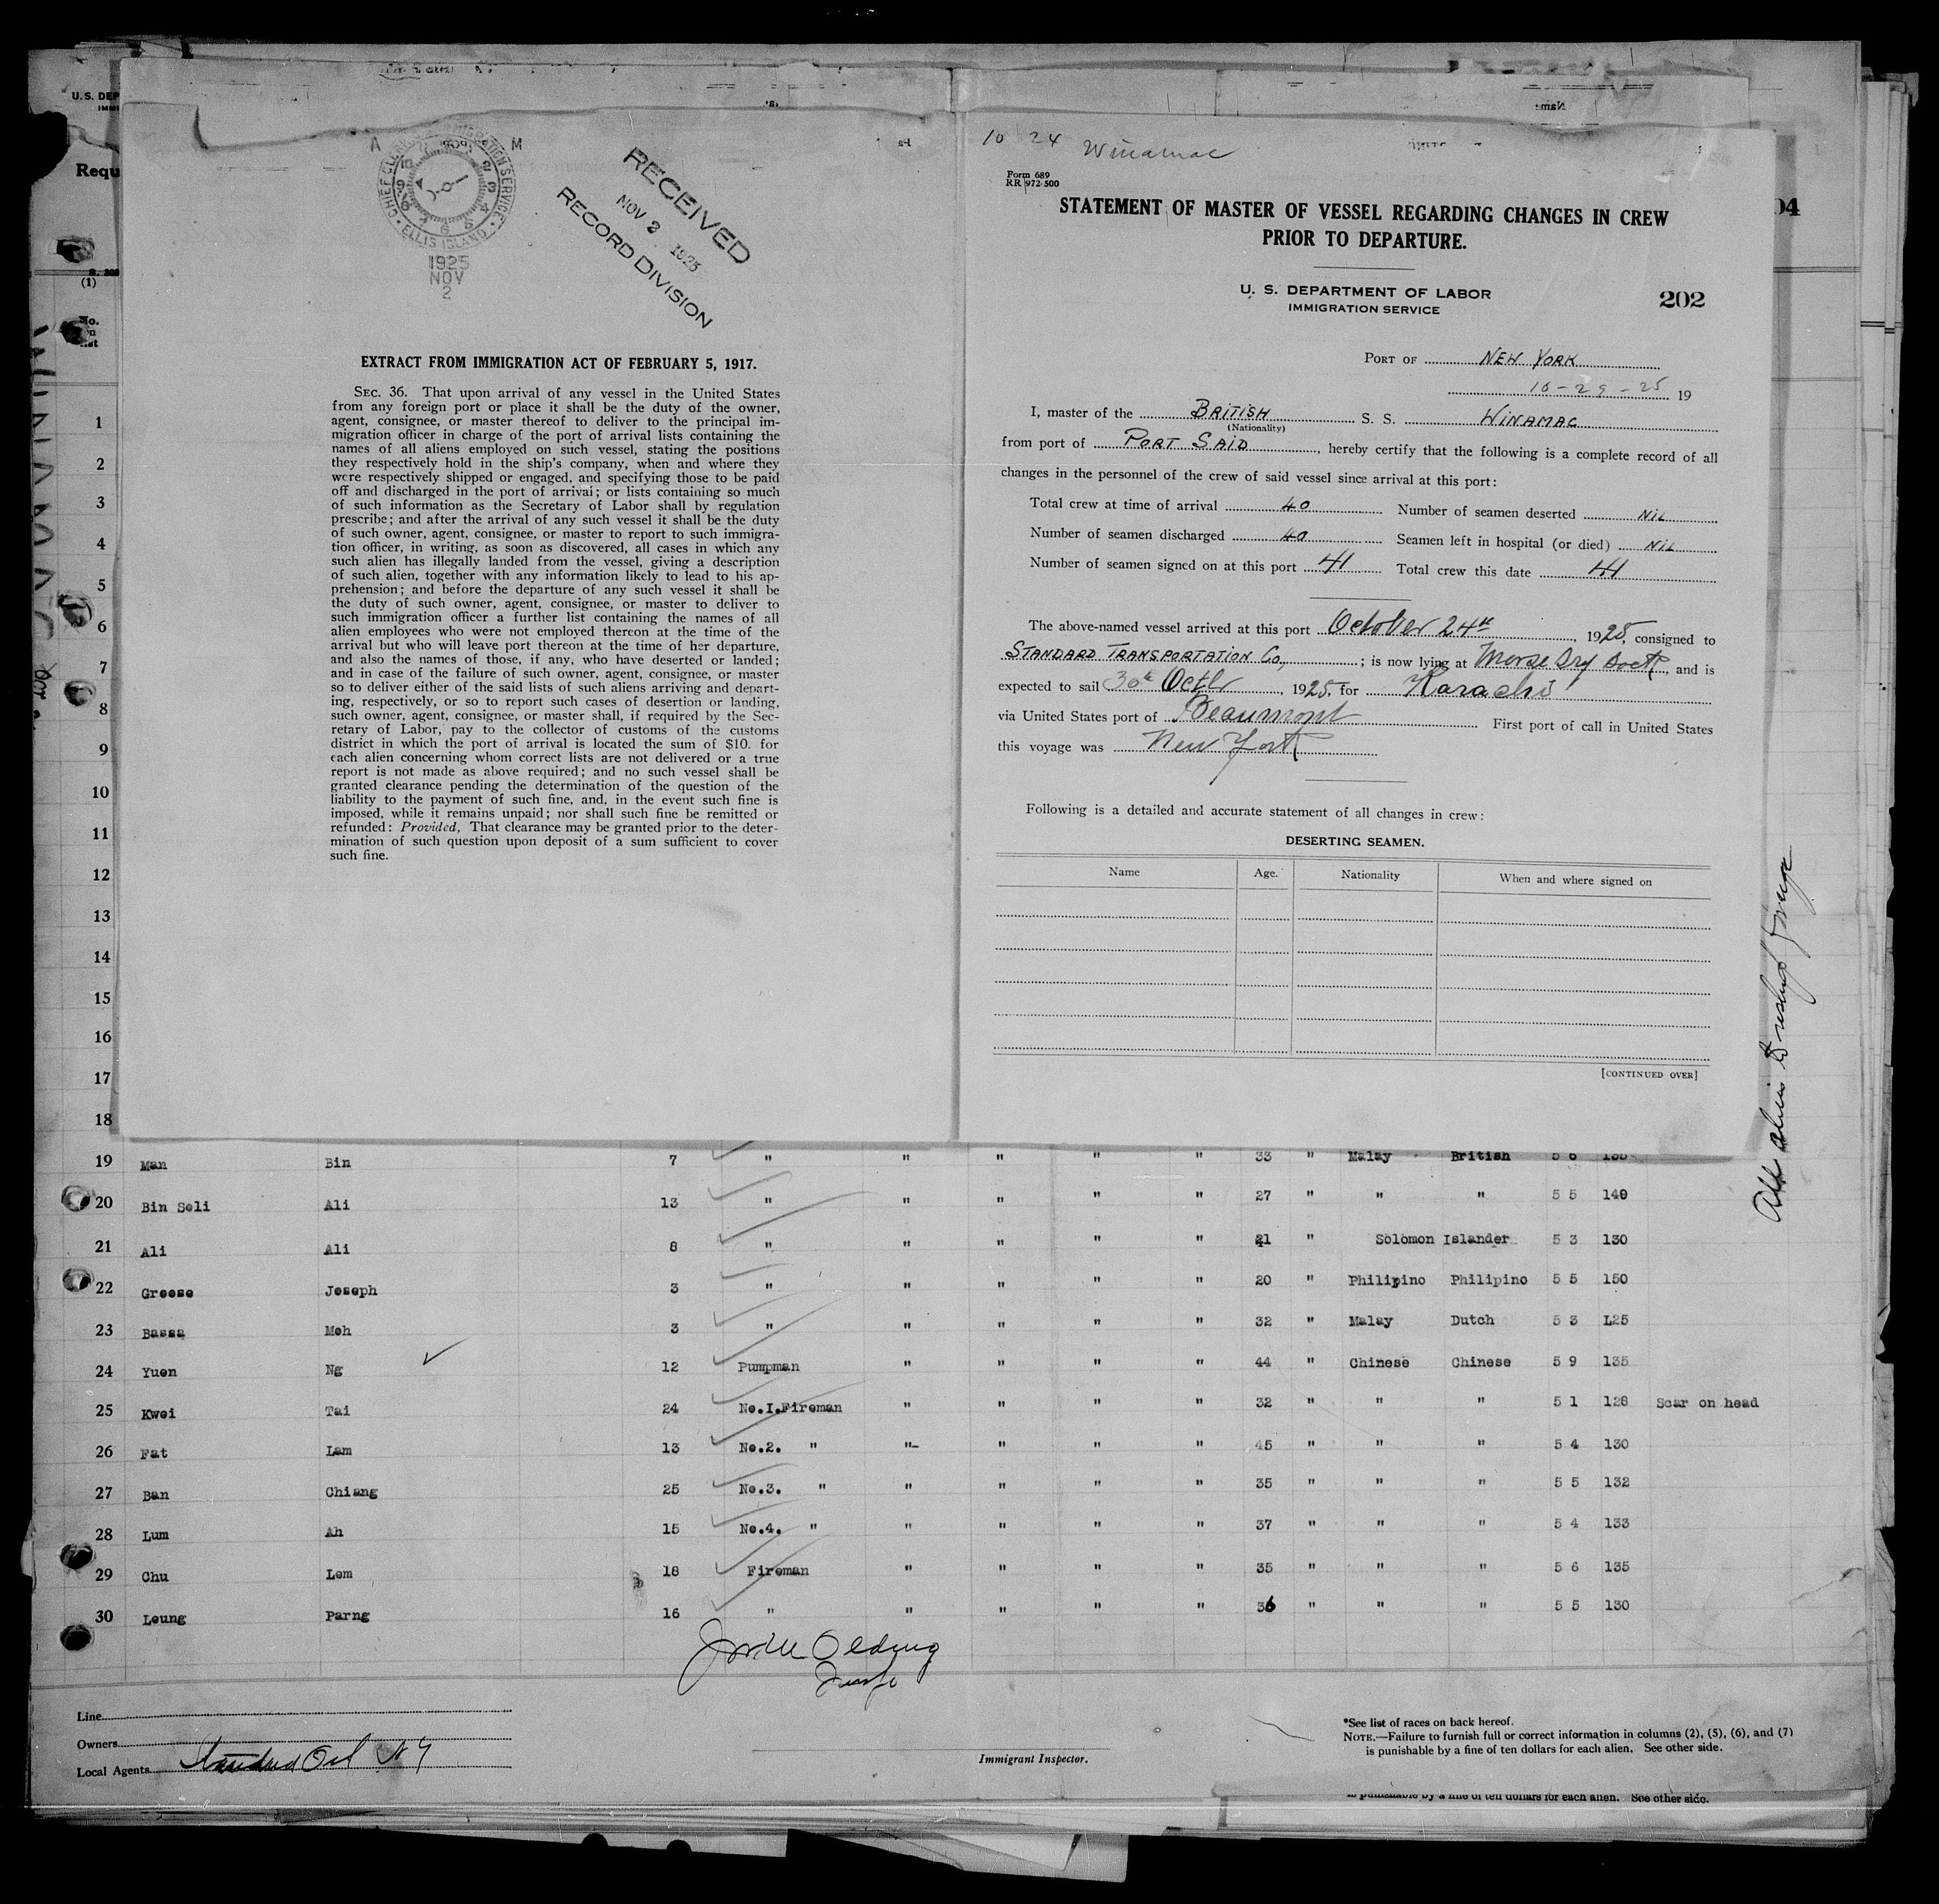 U.S. DEP
IMMI
Requ
(1)
No.
A
M
CHIEF CLERK IMMIGRATION SERVICE
ELLIS ISLAND
1925
NOV
2
RECEIVED
NOV 2 1925
RECORD DIVISION
EXTRACT FROM IMMIGRATION ACT OF FEBRUARY 5, 1917.
SEC. 36. That upon arrival of any vessel in the United States
from any foreign port or place it shall be the duty of the owner,
agent, consignee, or master thereof to deliver to the principal im-
migration officer in charge of the port of arrival lists containing the
names of all aliens employed on such vessel, stating the positions
they respectively hold in the ship's company, when and where they
were respectively shipped or engaged, and specifying those to be paid
off and discharged in the port of arrival; or lists containing so much
of such information as the Secretary of Labor shall by regulation
prescribe; and after the arrival of any such vessel it shall be the duty
of such owner, agent, consignee, or master to report to such immigra-
tion officer, in writing, as soon as discovered, all cases in which any
such alien has illegally landed from the vessel, giving a description
of such alien, together with any information likely to lead to his ap-
prehension; and before the departure of any such vessel it shall be
the duty of such owner, agent, consignee, or master to deliver to
such immigration officer a further list containing the names of all
alien employees who were not employed thereon at the time of the
arrival but who will leave port thereon at the time of her departure,
and also the names of those, if any, who have deserted or landed;
and in case of the failure of such owner, agent, consignee, or master
so to deliver either of the said lists of such aliens arriving and depart-
ing, respectively, or so to report such cases of desertion or landing,
such owner, agent, consignee, or master shall, if required by the Sec-
retary of Labor, pay to the collector of customs of the customs
district in which the port of arrival is located the sum of $10. for
each alien concerning whom correct lists are not delivered or a true
report is not made as above required; and no such vessel shall be
granted clearance pending the determination of the question of the
liability to the payment of such fine, and, in the event such fine is
imposed, while it remains unpaid; nor shall such fine be remitted or
refunded: Provided, That clearance may be granted prior to the deter-
mination of such question upon deposit of a sum sufficient to cover
such fine.
10 24 Winamac
Form 689
RR 972-500
STATEMENT OF MASTER OF VESSEL REGARDING CHANGES IN CREW
PRIOR TO DEPARTURE.
U. S. DEPARTMENT OF LABOR
IMMIGRATION SERVICE
202
04
PORT OF NEW YORK
10-29-25 19
I, master of the BRITISH S. S. WINAMAC
(Nationality)
from port of PORT SAID, hereby certify that the following is a complete record of all
changes in the personnel of the crew of said vessel since arrival at this port:
Total crew at time of arrival 40 Number of seamen deserted NIL
Number of seamen discharged 40 Seamen left in hospital (or died) NIL
Number of seamen signed on at this port 41 Total crew this date 41
The above-named vessel arrived at this port October 24th, 1925, consigned to
STANDARD TRANSPORTATION Co,; is now lying at Morse Dry Dock, and is
expected to sail 30th Octbr, 1925, for Karachi
via United States port of Beaumont First port of call in United States
this voyage was New York
Following is a detailed and accurate statement of all changes in crew:
DESERTING SEAMEN.
Name Age. Nationality When and where signed on
[CONTINUED OVER]
1
2
3
4
5
6
7
8
9
10
11
12
13
14
15
16
17
18
19 Man Bin 7 " " " " " 33 " Malay British 5 6
20 Bin Soli Ali 13 " " " " " 27 " " " 5 5 140
21 Ali Ali 8 " " " " " 21 " Solomon Islander 5 3 130
22 Greese Joseph 3 " " " " " 20 " Philipino Philipino 5 5 150
23 Bassa Moh 3 " " " " " 32 " Malay Dutch 5 3 L25
24 Yuen Ng 12 Pumpman " " " " 44 " Chinese Chinese 5 9 135
25 Kwei Tai 24 No.I.Fireman " " " " 32 " " " 5 1 128 Scar on head
26 Fat Lam 13 No.2. " "- " " " 45 " " " 5 4 130
27 Ban Chiang 25 No.3. " " " " " 35 " " " 5 5 132
28 Lum Ah 15 No.4. " " " " " 37 " " " 5 4 133
29 Chu Lem 18 Fireman " " " " 35 " " " 5 6 135
30 Leung Parng 16 " " " " " 36 " " " 5 5 130
Line
Owners
Local Agents Standard Oil N Y
Immigrant Inspector.
*See list of races on back hereof.
NOTE.—Failure to furnish full or correct information in columns (2), (5), (6), and (7)
is punishable by a fine of ten dollars for each alien. See other side.
is punishable by a fine of ten dollars for each alien. See other side.